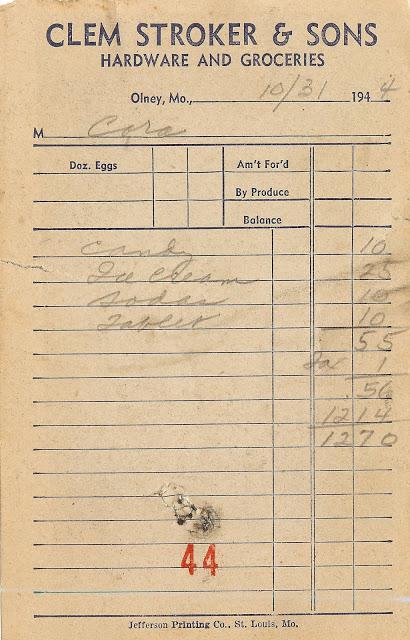 CLEM STROKER & SONS
HARDWARE AND GROCERIES
Olney, Mo., 10/31 1944
M Cora
Doz. Eggs Am't For'd
By Produce
Balance
candy 10
Ice Cream 25
Sodas 10
Tablet 10
55
Tax 1
.56
1214
1270
44
Jefferson Printing Co., St. Louis, Mo.